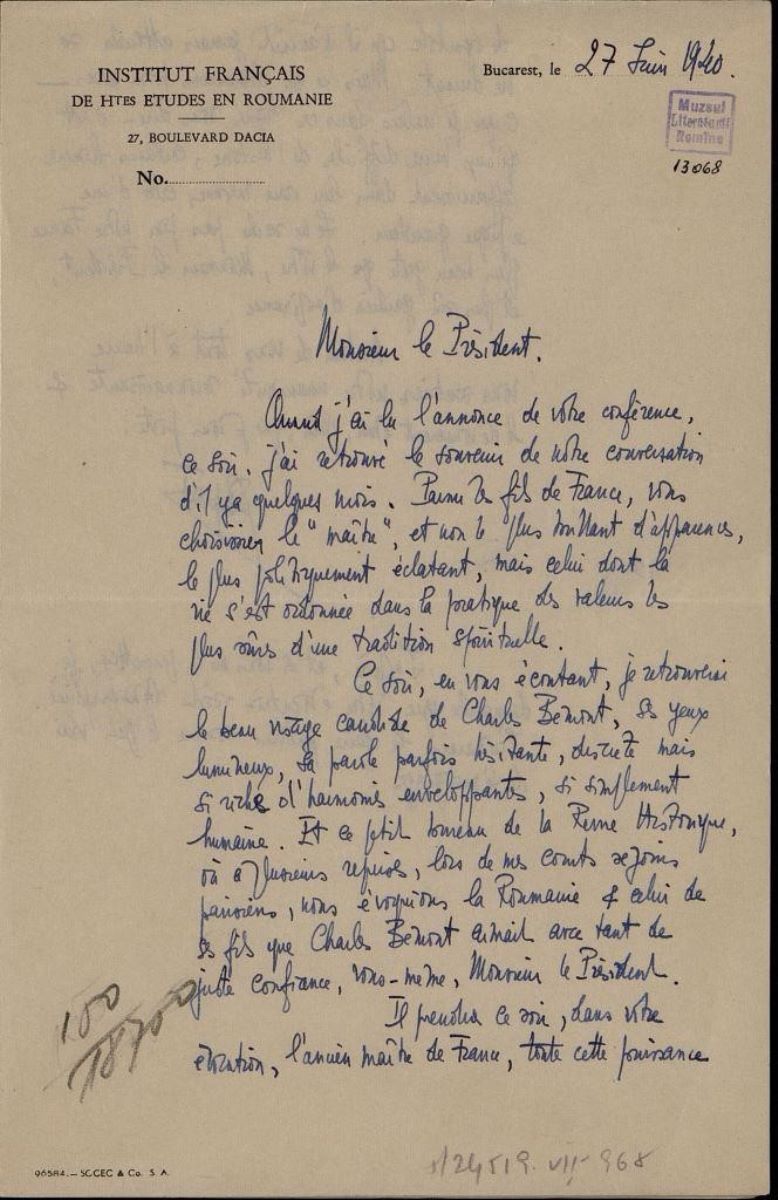 INSTITUT FRANÇAIS
DE HTES ETUDES EN ROUMANIE
27, BOULEVARD DACIA
No.
Bucarest, le 27 Juin 1940.
Muzeul
Literaturii
Romîne
13068
Monsieur le Président.
Quand j'ai lu l'annonce de votre conférence,
ce soir, j'ai retrouvé le souvenir de notre conversation
d'il y a quelques mois. Parmi les fils de France, vous
choisissiez le "maître", et non le plus brillant d'apparences,
le plus politiquement éclatant, mais celui dont la
vie s'est ordonnée dans la pratique des valeurs les
plus sûres d'une tradition spirituelle.
Ce soir, en vous écoutant, je retrouverai
le beau visage candide de Charles Bémont, ses yeux
lumineux, sa parole parfois hésitante, discrète mais
si riche d'harmonies enveloppantes, si simplement
humaine. Et ce petit bureau de la Revue Historique,
où à plusieurs reprises, lors de mes courts séjours
parisiens, nous évoquions la Roumanie & celui de
ses fils que Charles Bémont aimait avec tant de
juste confiance, vous-même, Monsieur le Président.
Il prendra ce soir, dans votre
évocation, l'ancien maître de France, toute cette puissance
100
18700
96584.— SOCEC & Co. S. A.
24519. VII 968